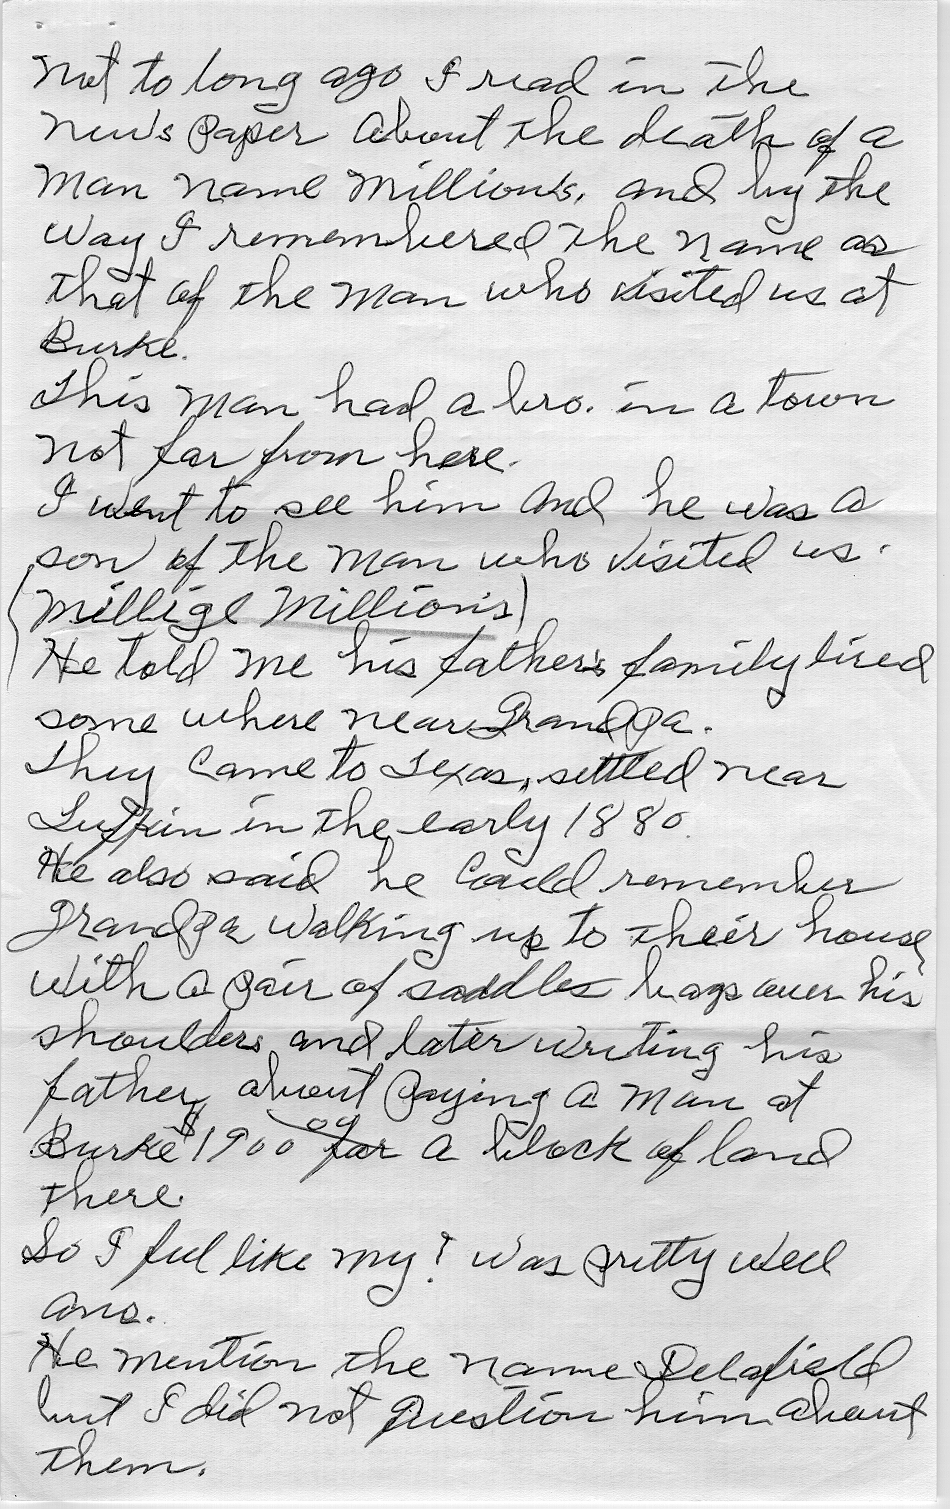 Not to long ago I read in the
New's paper about the death of a
Man name Million's, and by the
way I remembered the name as
that of the man who visited us at
Burke.
This man had a bro. in a town
not far from here.
I went to see him and he was a
son of the man who visited us.
(Millige Million's)
He told me his father's family lived
some where near Grandpa.
They came to Texas, settled near
Lufkin in the early 1880.
He also said he could remember
Grandpa walking up to their house,
with a pair of saddles bags over his
shoulders and later writing his
father, about paying a man at
Burke $1900 00 for a block of land
there.
So I feel like my ? was pretty well
ans.
He mention the name Delafield
but I did not question him about
them.